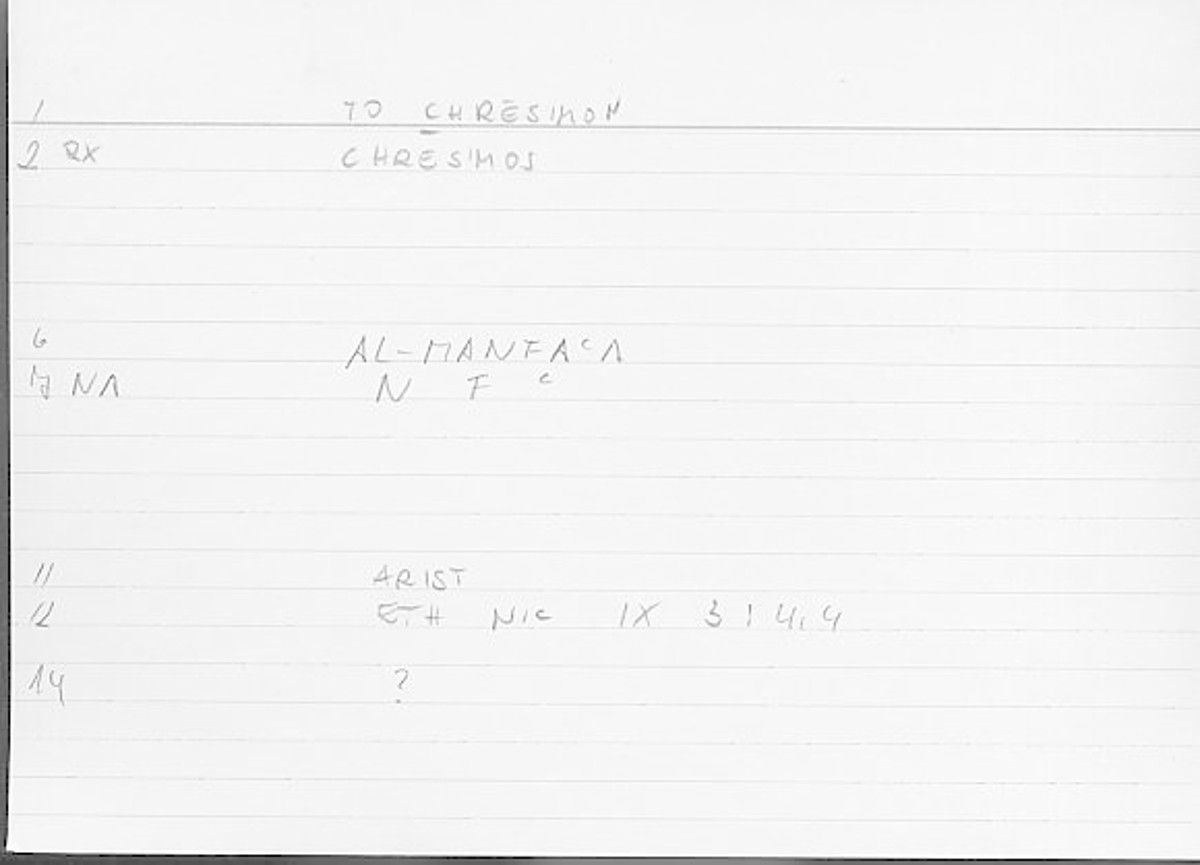 1 TO CHRĒSIMON
2 RX CHRĒSIMOS
6 AL-MANFAᶜA
7 NA N F ᶜ
11 ARIST
12 ETH NIC IX 3 : 4,4
14 ?